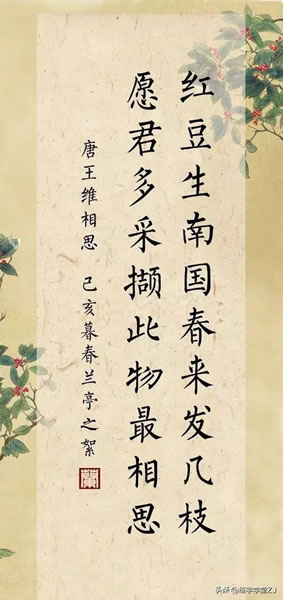 红豆生南国春来发几枝
愿君多采撷此物最相思
唐王维相思 己亥暮春兰亭之絮
头条@练字学堂ZJ